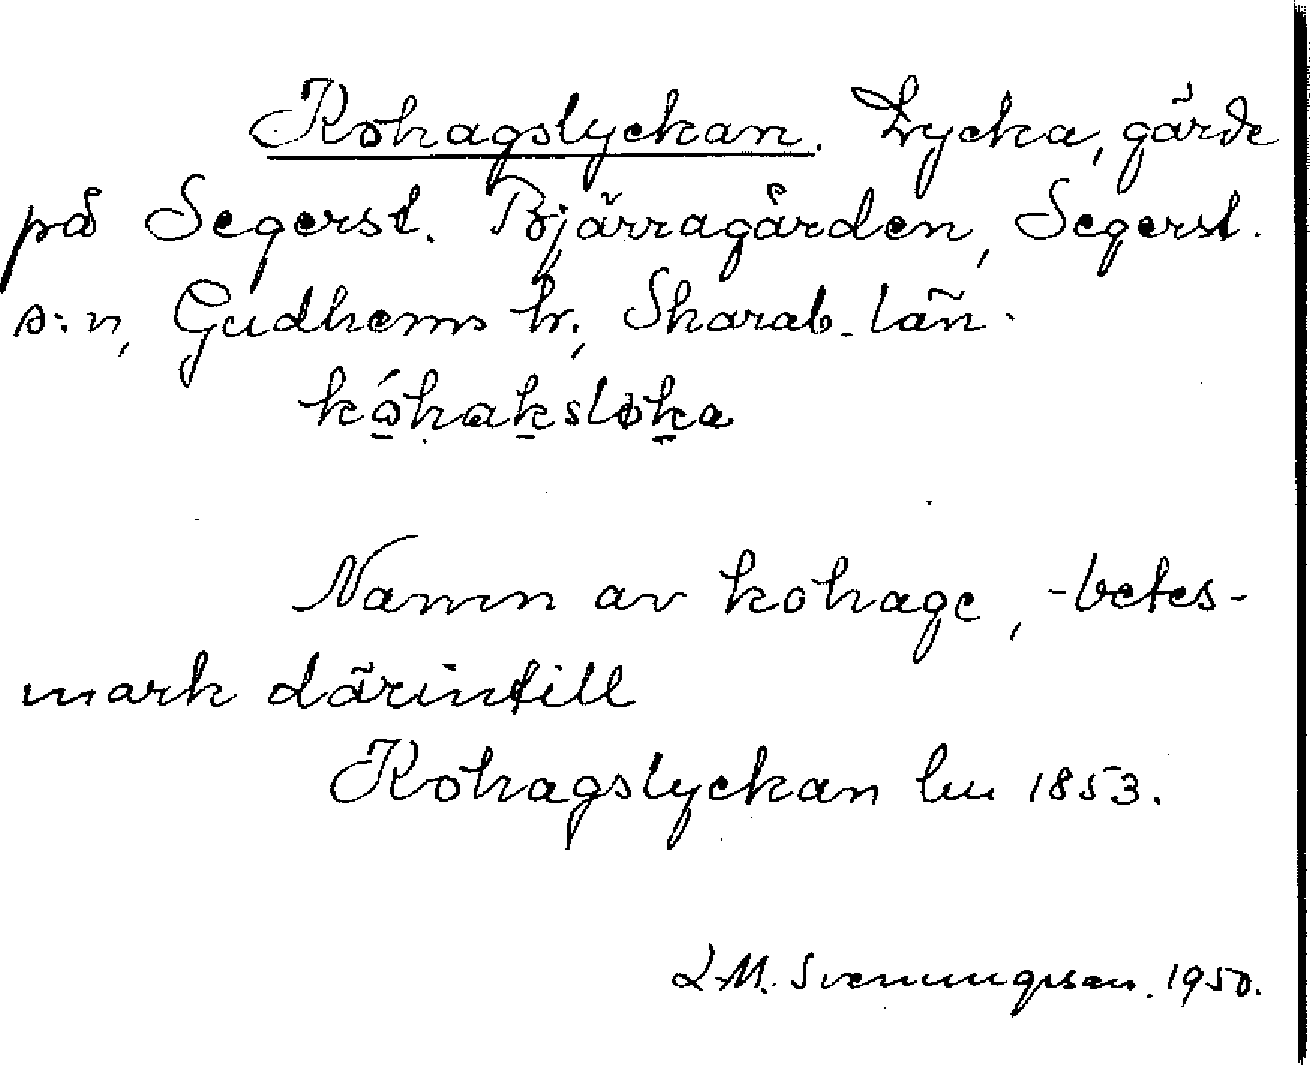 Kohagslyckan. Lycka, gärde
på Segerst. Bjärragården, Segerst.
s:n, Gudhems hr, Skarab. län.
kóhaksløka
Namn av kohage, -betes-
mark därintill
Kohagslyckan lm 1853.
L.M. Svenungsson. 1950.